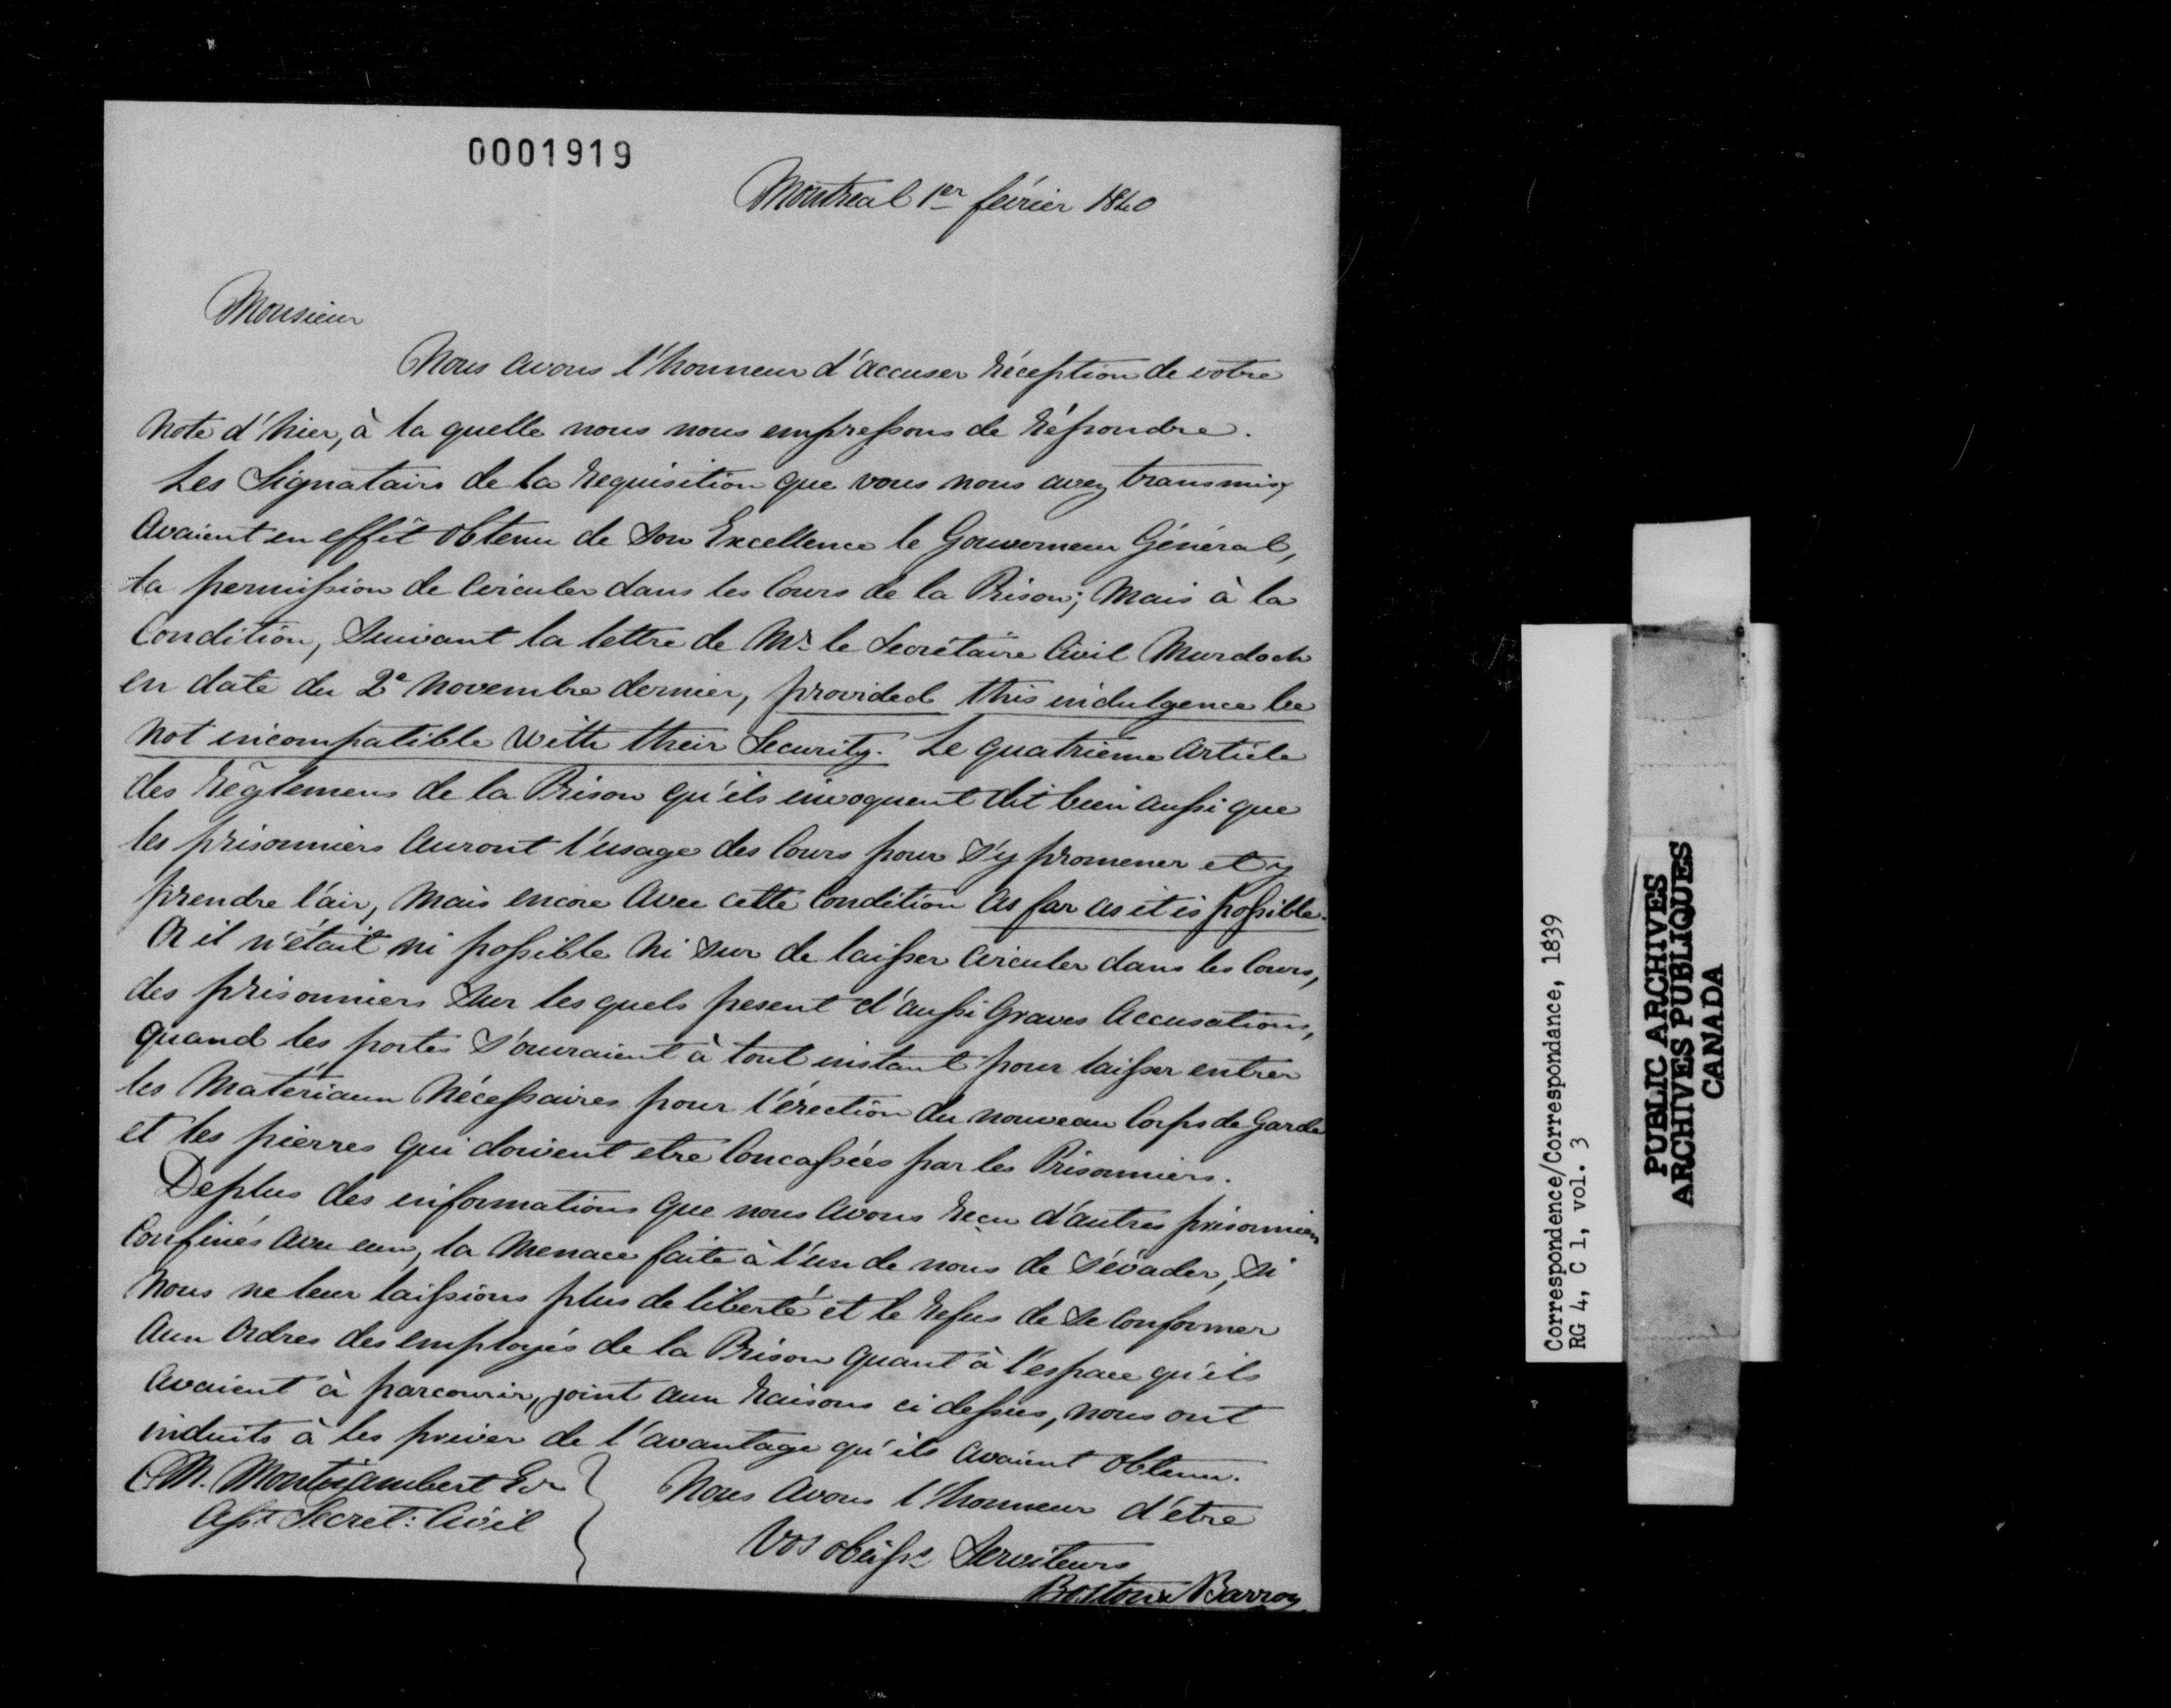 0001919
Montreal 1er février 1840
Monsieur
Nous avons l'honneur d'accuser réception de votre
note d'hier, à la quelle nous nous empressons de répondre.
Les Signataires de la requisition que vous nous avez transmise
avaient en effêt obtenu de Son Excellence le Gouverneur Général,
la permission de circuler dans les Cours de la Prison; Mais à la
Condition, Suivant la lettre de Mr. le Secrétaire Civil Murdoch
en date du 2e novembre dernier, provided this indulgence be
not incompatible with their Security. Le quatrieme article
des règlemens de la Prison qu'ils invoquent dit bien aussi que
les prisonniers auront l'usage des Cours pour s'y promener et y
prendre l'air, mais encore avec cette Condition as far as it is possible.
Or il n'était ni possible ni sur de laisser circuler dans les Cours,
des prisonniers Sur les quels pesent d'aussi graves accusations,
quand les portes s'ouvraient à tout instant pour laisser entrer
les matériaux nécessaires pour l'érection du nouveau Corps de Garde
et les pierres qui doivent etre Concassées par les Prisonniers.
De plus des informations que nous avons reçu d'autres prisonniers
Confinés avec eux, la menace faite à l'un de nous de s'évader, Si
nous ne leur laissions plus de liberté et le refus de Se Conformer
aux ordres des employés de la Prison quant à l'espace qu'ils
avaient à parcourir, joint aux raisons ci dessus, nous ont
induits à les priver de l'avantage qu'ils avaient obtenu.
Nous avons l'honneur d'être
Vos obeiss. Serviteurs
Boston & Barron
M. Montizambert Esr
Asst Secret: Civil
Correspondence/Correspondance, 1839
RG 4, C 1, vol. 3
PUBLIC ARCHIVES
ARCHIVES PUBLIQUES
CANADA